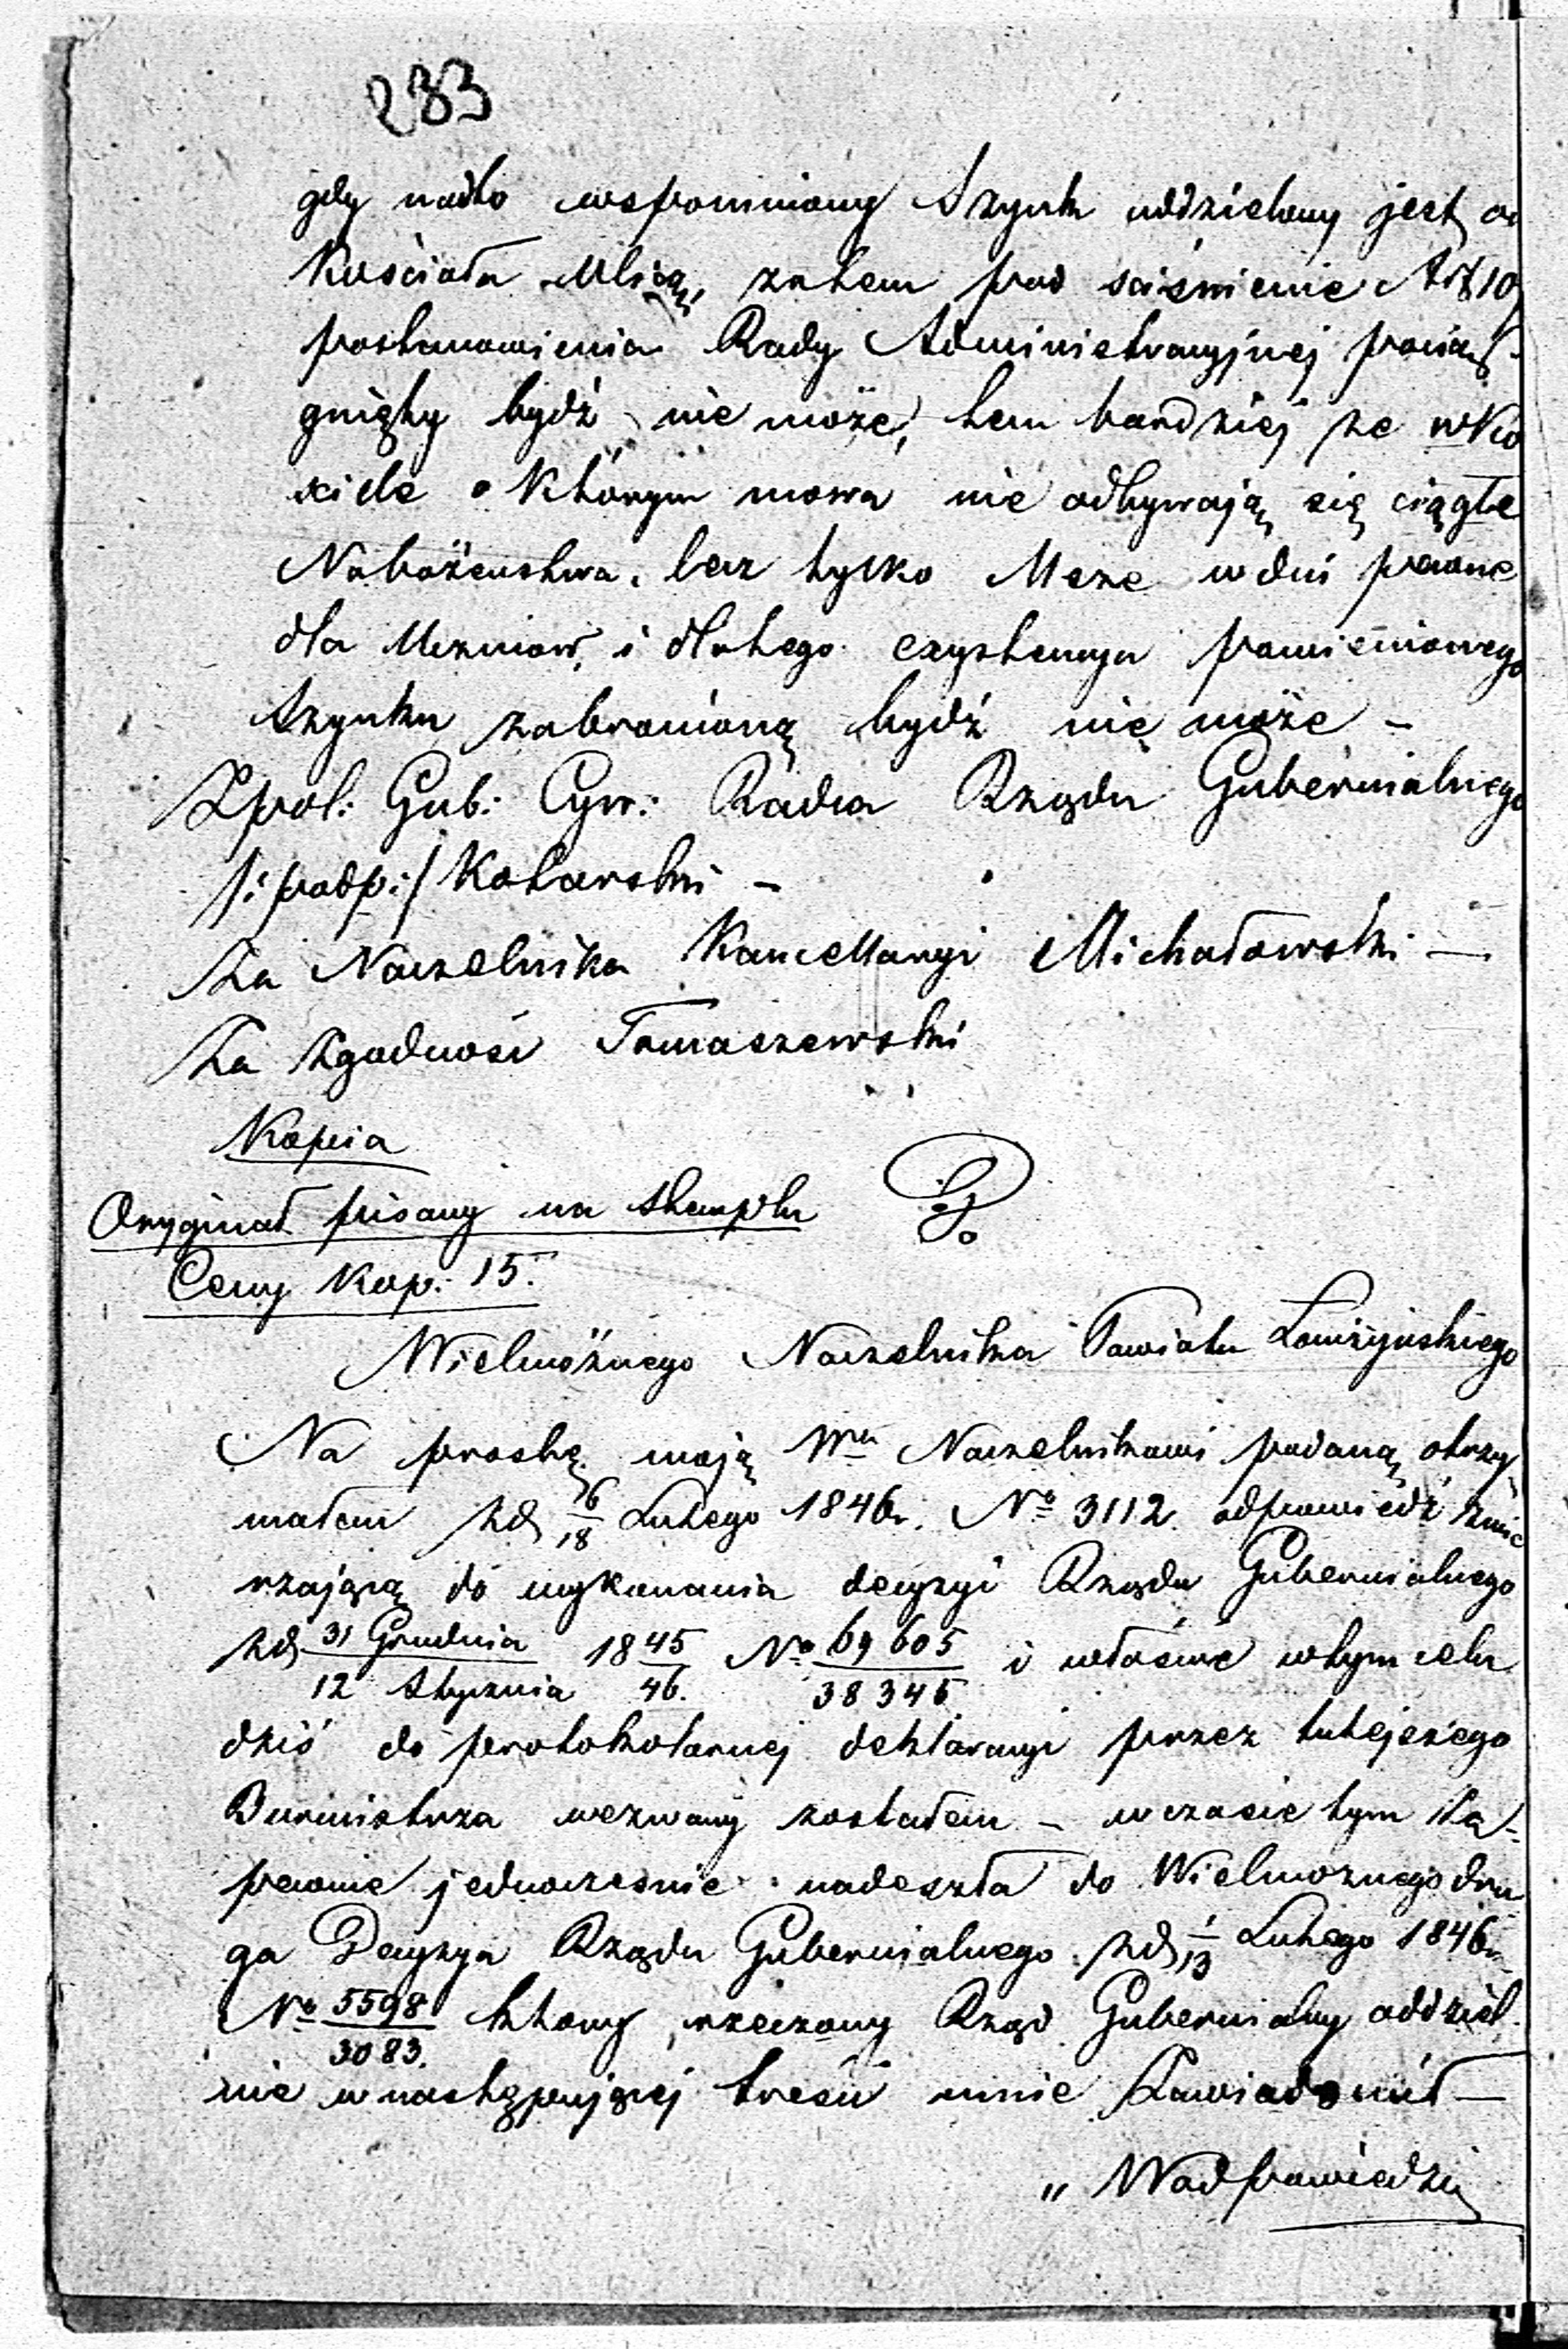 233
gdy nadto wspomniony Szynk oddzielony jest od
Kościoła Ulicą, zatem pod ściśnienie Art 10
postanowienia Rady Administracyjnej pocią-
gnięty bydź nie może, tem bardziej że w Ko
ściele o Którym mowa nie odbywają się ciągłe
Nabożeństwa, lecz tylko Msze w dni pewne
dla Uczniow, i dlatego exystencya pomienionego
Szynku zabronioną bydź nie może –
Zpol: Gub: Cyw: Radca Rządu Gubernialnego
/: podp:/ Kotarski –
Za Naczelnika Kancellaryi Michałowski —
Za Zgodność Tomaszewski
Kopia
Oryginał pisany na Stemplu
Ceny Kop: 15.
Wielmożnego Naczelnika Powiatu Łomżyńskiego
Na prośbę moją Wmu Naczelnikowi podaną otrzy-
małem zd 6/18 Lutego 1846r. No 3112. odpowiedź zmie
rzającą do wykonania decyzyi Rządu Gubernialnego
zd 31 Grudnia/12 Stycznia 1845/46. No 69605/38345 i właśnie w tym celu
dziś do protokolarnej deklaracyi przez tutejszego
Burmistrza wezwany zostałem – w czasie tym Za-
pewne jednocześnie nadeszła do Wielmożnego dru
ga Decyzya Rządu Gubernialnego zd 1/13 Lutego 1846r.
No 5598/3083. którą rzeczony Rząd Gubernialny oddziel
nie w następującej treści mnie Zawiadomił —
„ W odpowiedzi